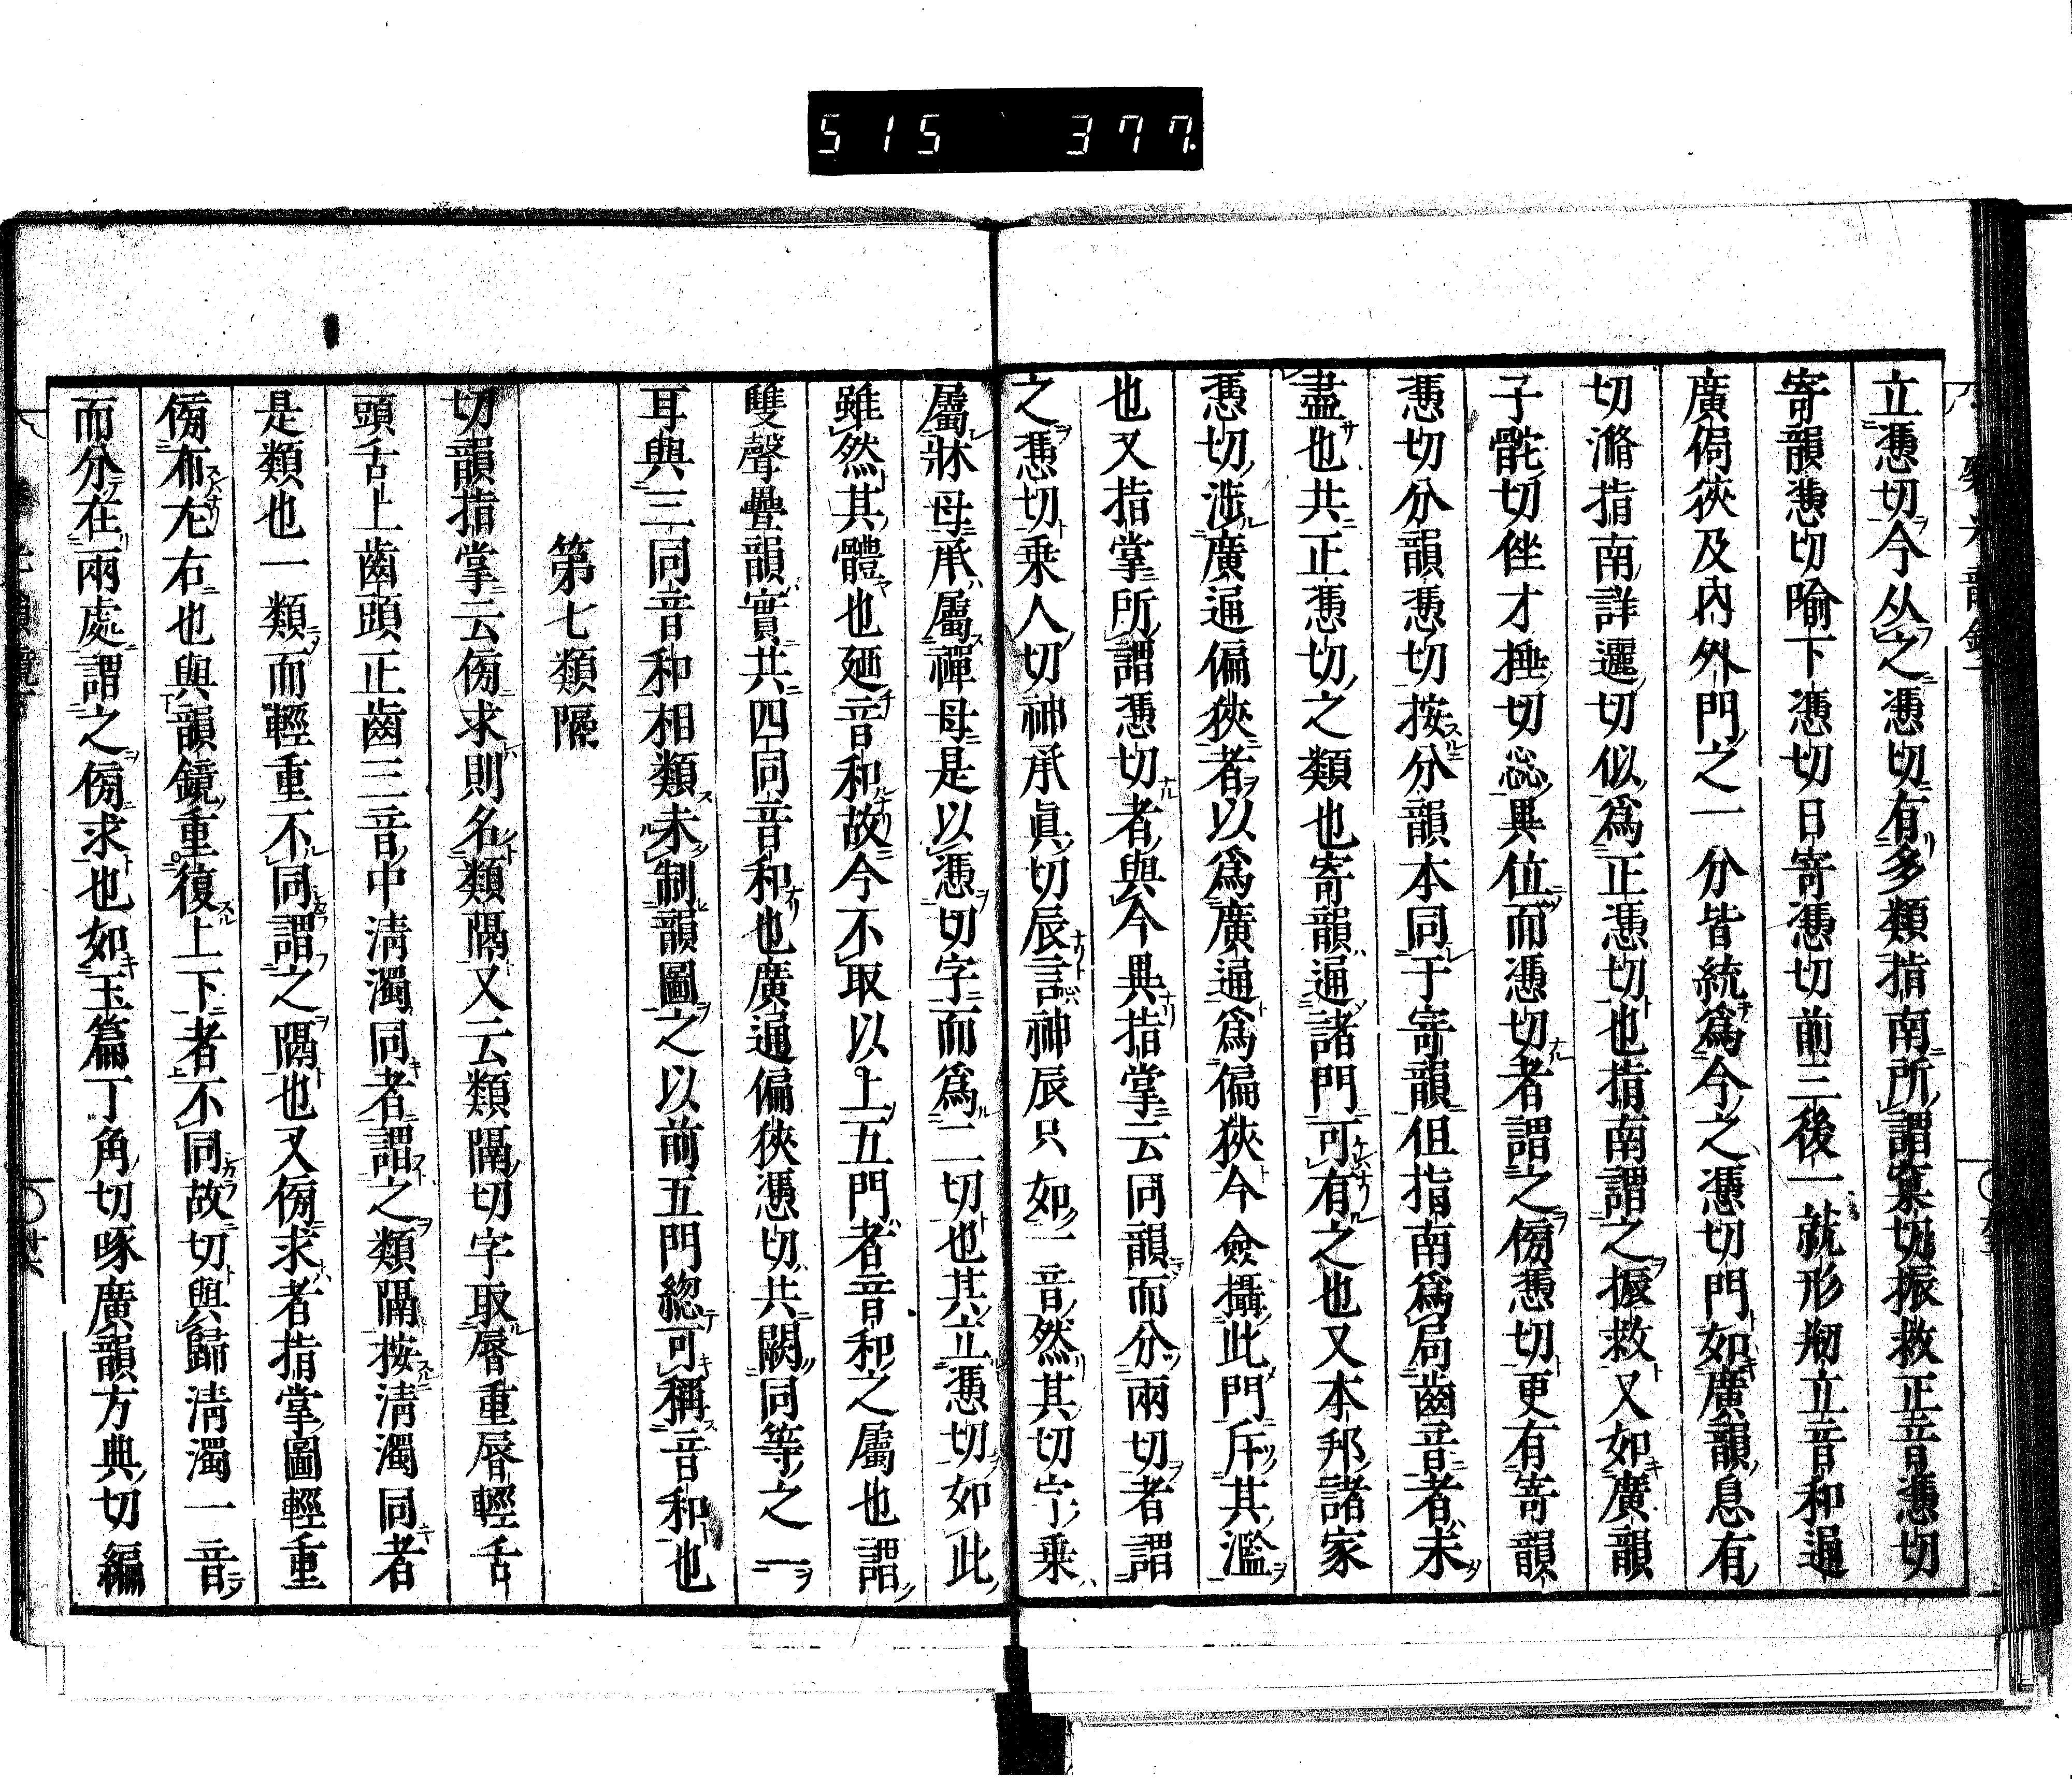 515 377.
立憑切今从之憑切有多類指南所謂窠切振救正音憑切
寄韻憑切喻下憑切日寄憑切前三後一就形刱立音和通
廣侷狹及內外門之一分皆統爲今之憑切門如廣韻息有
切滫指南詳邐切似爲正憑切也指南謂之振救又如廣韻
子䯛切侳才捶切惢異位而憑切者謂之傍憑切更有寄韻
憑切分韻憑切按分韻本同于寄韻但指南爲局齒音者未
盡也共正憑切之類也寄韻通諸門可有之也又本邦諸家
憑切涉廣通偏狹者以爲廣通爲偏狹今僉攝此門斥其濫
也又指掌所謂憑切者與今異指掌云同韻而分兩切者謂
之憑切乗人切神承眞切辰言神辰只如一音然其切字乗
屬牀母承屬禪母是以憑切字而爲二切也其立憑切如此
雖然其體也廼音和故今不取以上五門者音和之屬也謂
雙聲疊韻實共四同音和也廣通偏狹憑切共闕同等之一
耳與三同音和相類未制韻圖之以前五門総可稱音和也
第七類隔
切韻指掌云傍求則名類隔又云類隔切字取脣重脣輕舌
頭舌上齒頭正齒三音中淸濁同者謂之類隔按淸濁同者
是類也一類而輕重不同謂之隔也又傍求者指掌圖輕重
傍布左右也與韻鏡重復上下者不同故切與歸淸濁一音
而分在兩處謂之傍求也如玉篇丁角切啄廣韻方典切編